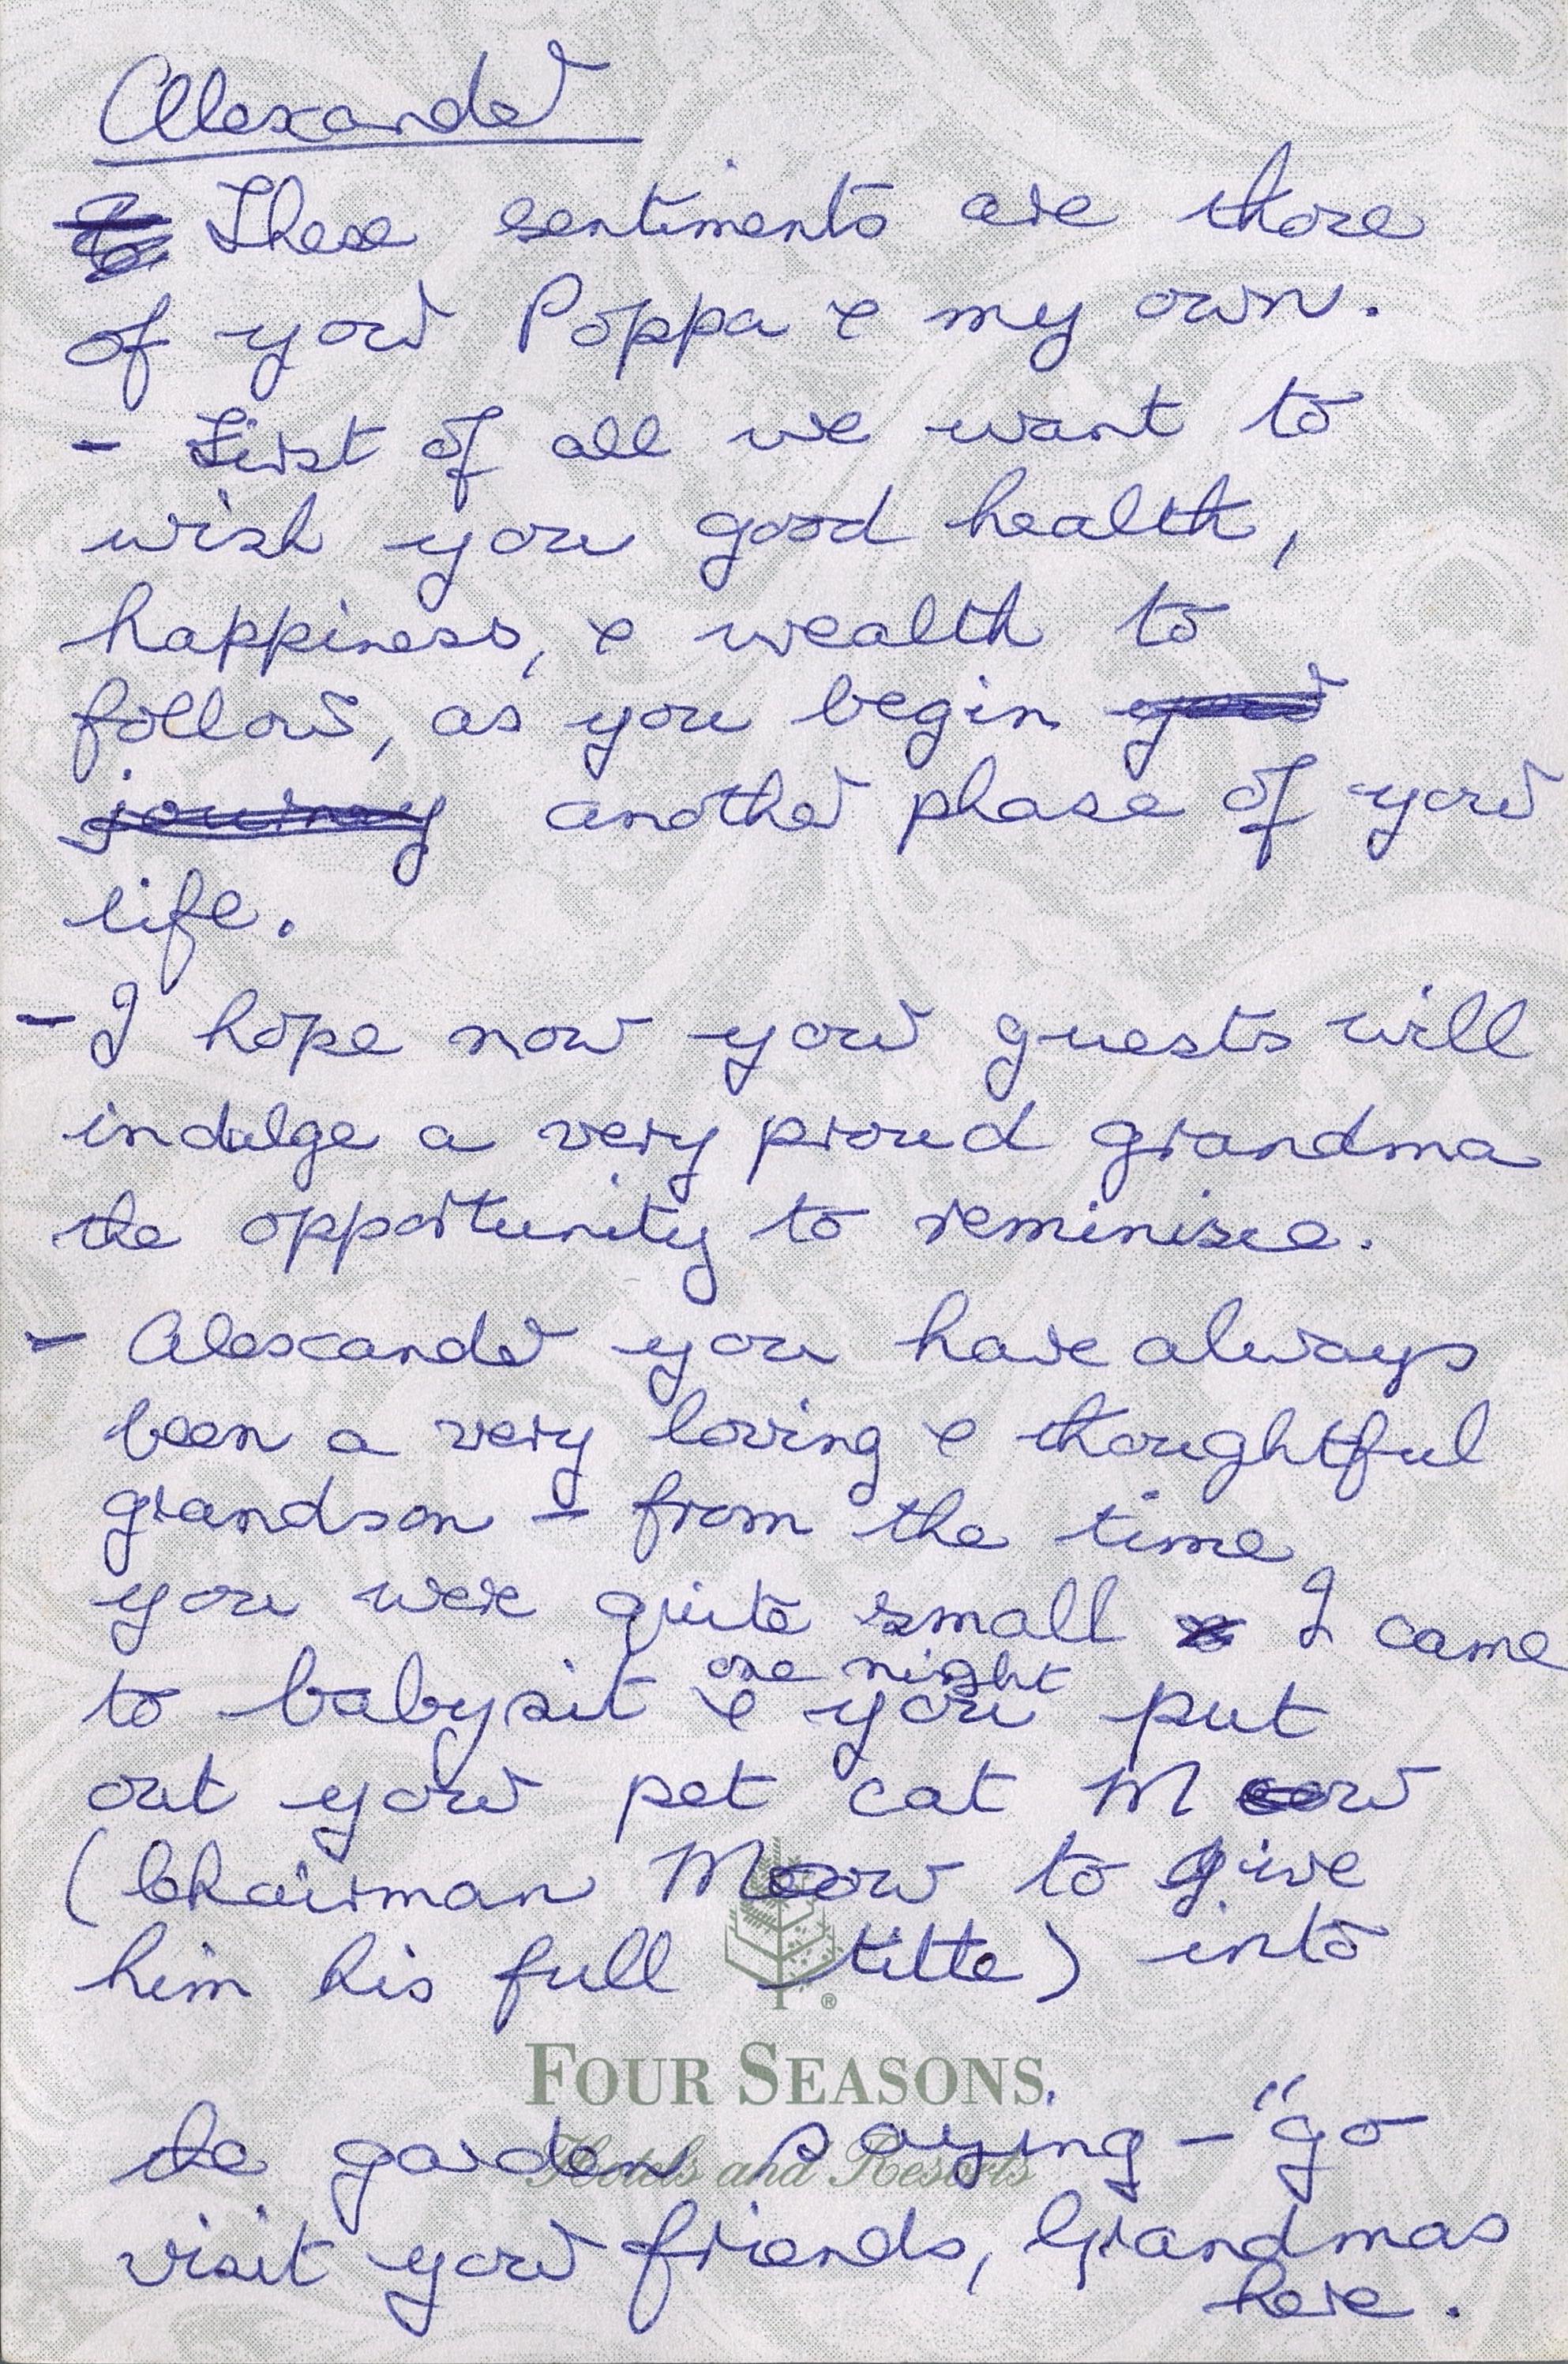 Alexander
These sentiments are those
of your Poppa & my own.
- First of all we want to
wish you good health,
happiness, & wealth to
follow, as you begin your
journey another phase of your
life.
- I hope now your guests will
indulge a very proud grandma
the opportunity to reminisce.
- Alexander you have always
been a very loving & thoughtful
grandson - from the time
you were quite small I came
one night
to babysit & you put
out your pet cat Meow
(Chairman Meow to give
him his full title) into
FOUR SEASONS
the garden saying - "go
Hotels and Resorts
visit your friends, Grandmas
here.